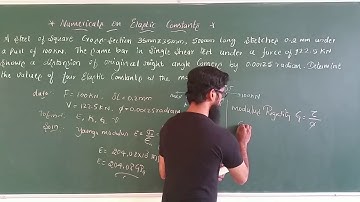 * Numericals on Elastic Constants *
A steel of Square Cross section 35mm×35mm, 500mm long stretches 0.2mm under
a pull of 100KN. The same bar in Single Shear test under a force of 122.5 KN
Shows a distortion of original right angle Corners by 0.00125 radian. Determine
the values of four Elastic Constants of the
data: F = 100KN, δL = 0.2mm
V = 122.5KN, ϕ = 0.00125 radian
Solⁿ: Young's modulus E =
E = 204.08 ×10³
E = 204.08 GPa
100KN
modulus Rigidity G = τ/ϕ